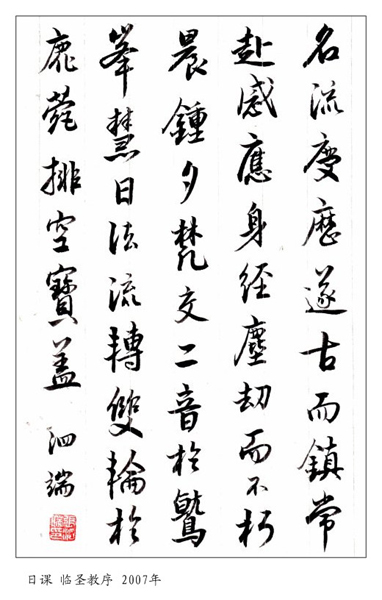 名流慶歷遂古而鎮常
赴感應身經塵劫而不朽
晨鍾夕梵交二音於鷲
峯慧日法流轉雙輪於
鹿菀排空寶蓋 泗端
日课 临圣教序 2007年